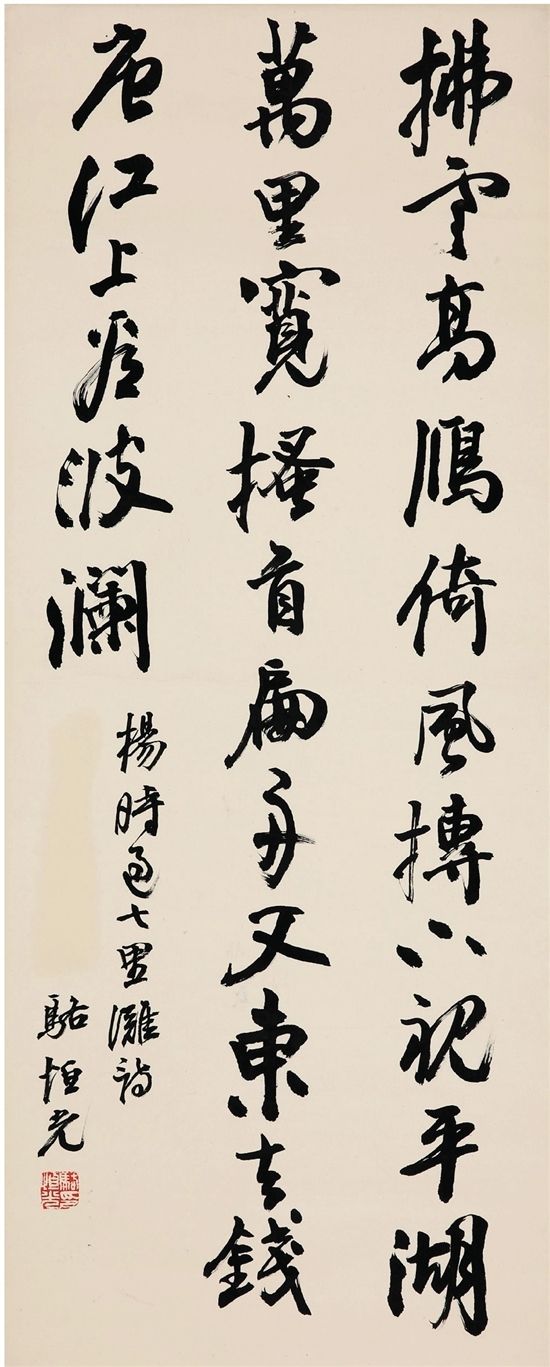 拂雲高雁倚風摶下視平湖
萬里寬搔首扁舟又東去錢
唐江上看波瀾
楊時過七里灘詩
駱恒光